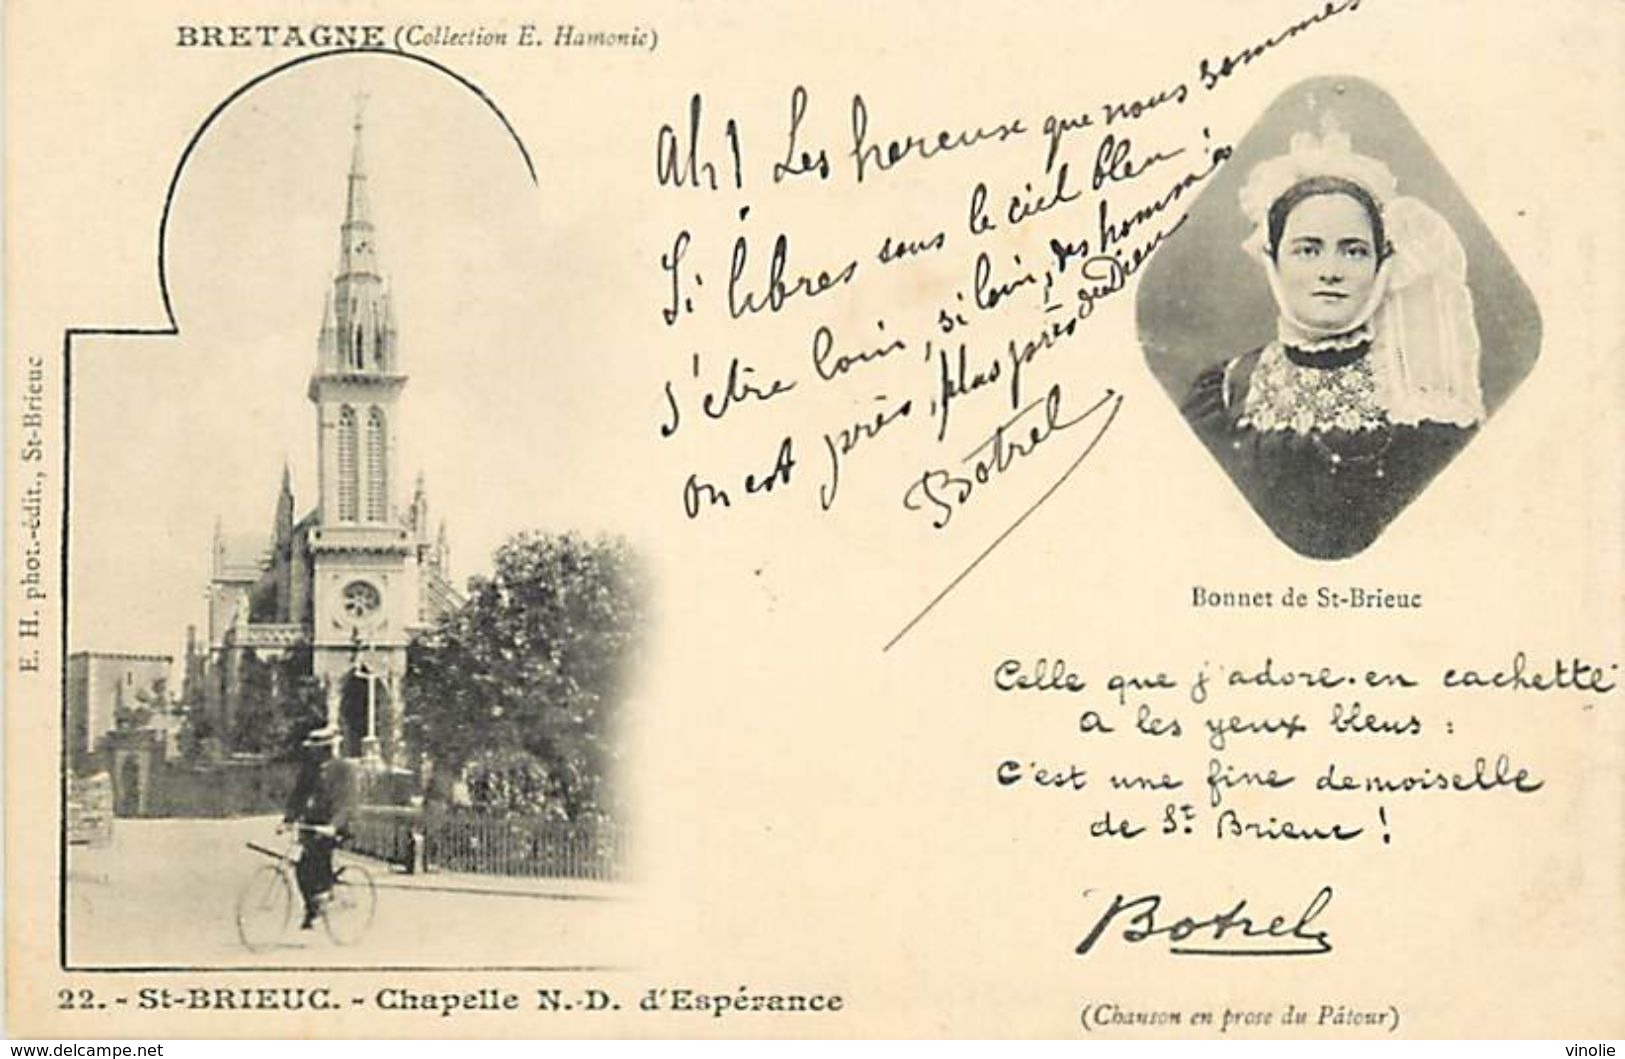 BRETAGNE (Collection E. Hamonic)
Ah! Les hereux que nous sommes
Si libres sous le ciel bleu!
S'être loin, si loin, des hommes
on est près, plus près du Dieu
Botrel
E. H. phot.-édit., St-Brieuc
Bonnet de St-Brieuc
Celle que j'adore en cachette
a les yeux bleus :
C'est une fine demoiselle
de St Brieuc !
Botrel
22. - St-BRIEUC. - Chapelle N.-D. d'Espérance
(Chanson en prose du Pâtour)
www.delcampe.net
vinolie